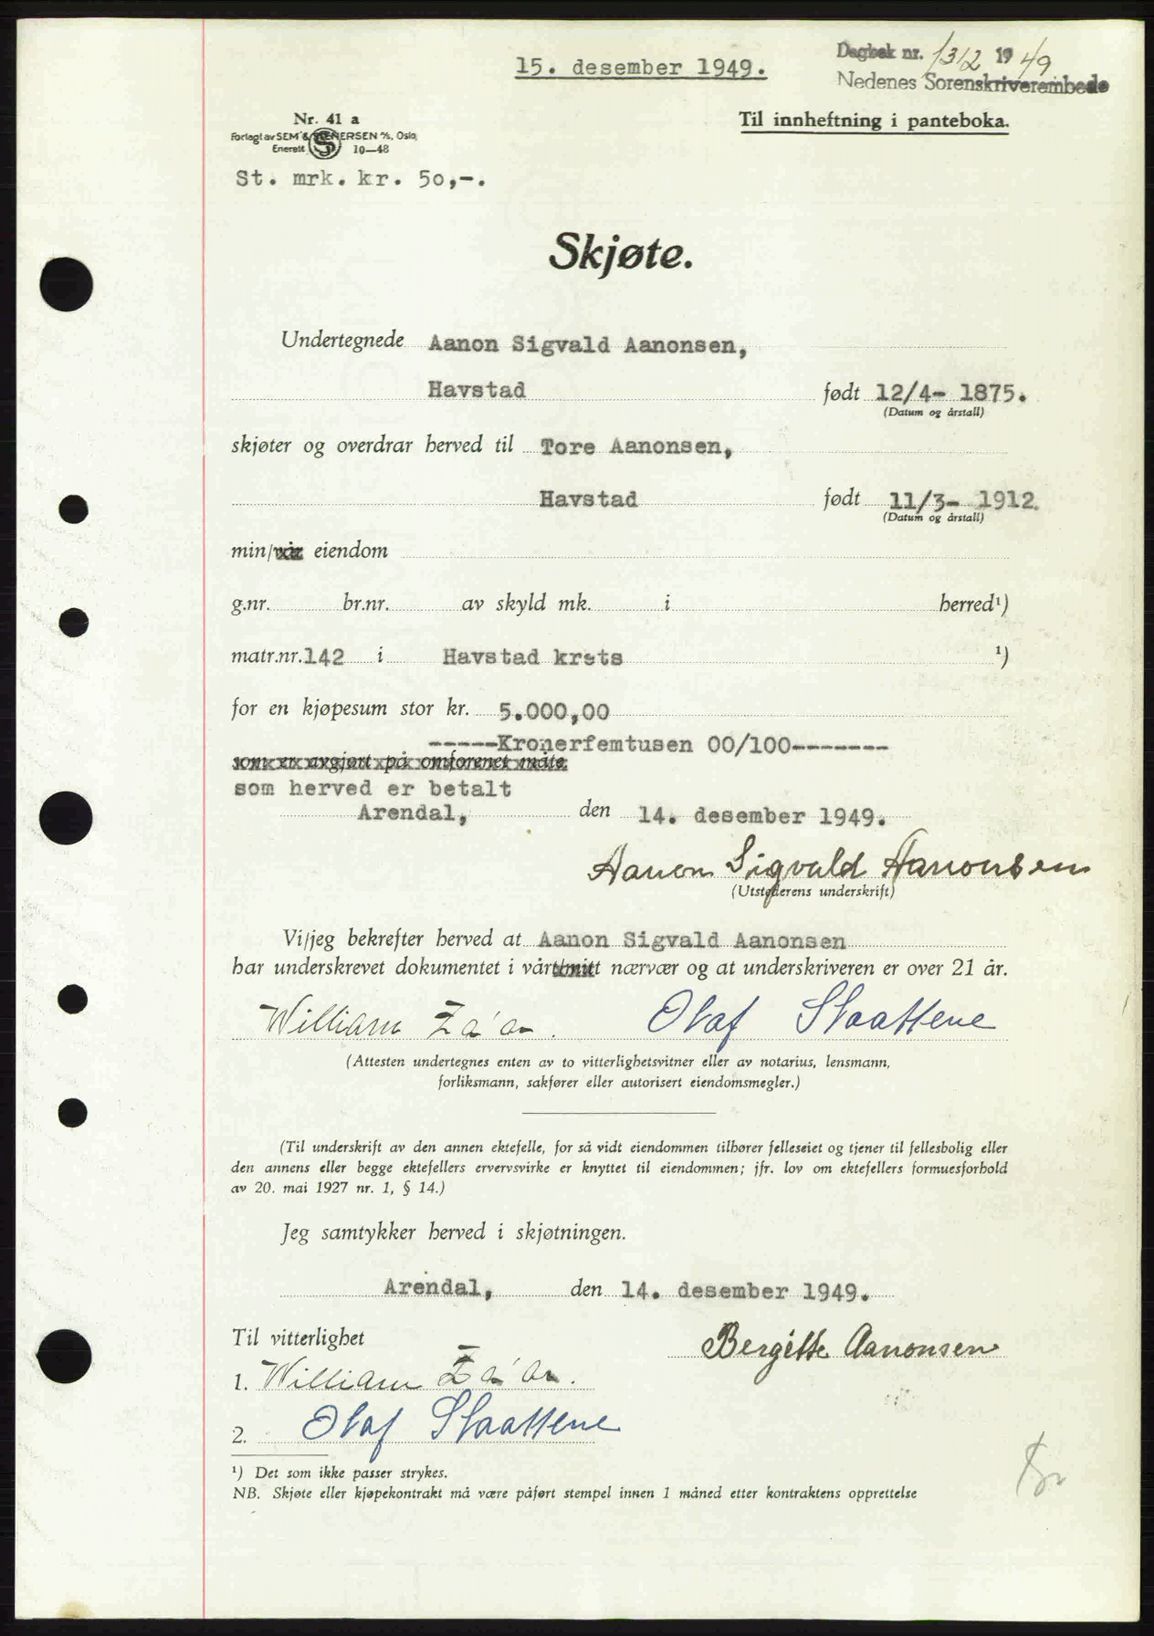 15. desember 1949.
Dagbok nr. 1312 1949
Nedenes Sorenskriverembede
Nr. 41 a
Forlagt av SEM & STENERSEN A/S, Oslo.
Enerett 10—48
Til innheftning i panteboka.
St. mrk. kr. 50,-.
Skjøte.
Undertegnede Aanon Sigvald Aanonsen,
Havstad født 12/4- 1875.
(Datum og årstall)
skjøter og overdrar herved til Tore Aanonsen,
Havstad født 11/3- 1912.
(Datum og årstall)
min/vår eiendom
g.nr. br.nr. av skyld mk. i herred¹)
matr.nr. 142 i Havstad krets ¹)
for en kjøpesum stor kr. 5.000,00
-----Kronerfemtusen 00/100-------
som er avgjort på omforenet måte.
som herved er betalt
Arendal, den 14. desember 1949.
Aanon Sigvald Aanonsen
(Utstederens underskrift)
Vi/jeg bekrefter herved at Aanon Sigvald Aanonsen
har underskrevet dokumentet i vårt/mitt nærvær og at underskriveren er over 21 år.
William Olaf
(Attesten undertegnes enten av to vitterlighetsvitner eller av notarius, lensmann,
forliksmann, sakfører eller autorisert eiendomsmegler.)
(Til underskrift av den annen ektefelle, for så vidt eiendommen tilhører felleseiet og tjener til fellesbolig eller
den annens eller begge ektefellers ervervsvirke er knyttet til eiendommen; jfr. lov om ektefellers formuesforhold
av 20. mai 1927 nr. 1, § 14.)
Jeg samtykker herved i skjøtningen.
Arendal, den 14. desember 1949.
Til vitterlighet
Bergitte Aanonsen
1. William
2. Olaf
¹) Det som ikke passer strykes.
NB. Skjøte eller kjøpekontrakt må være påført stempel innen 1 måned etter kontraktens opprettelse